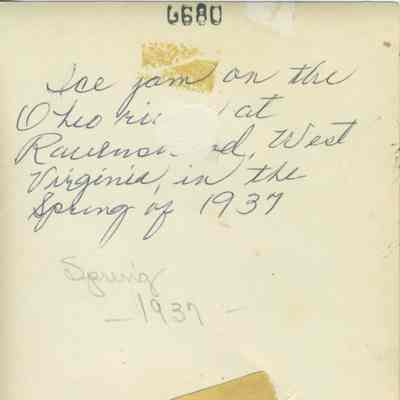 0899
Ice jam on the
Ohio ri at
Ravens d, West
Virginia, in the
Spring of 1937
Spring
- 1937 -